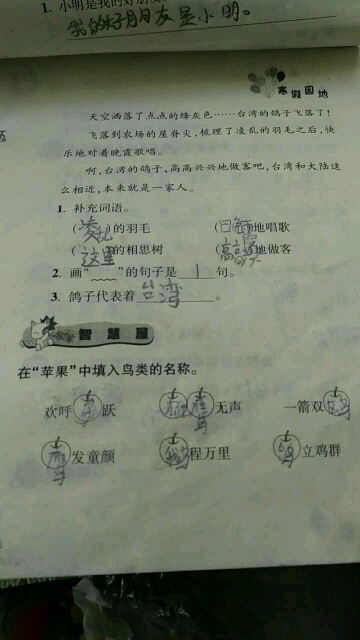 1. 小明是我的好朋友。
我的好朋友是小明。
寒假园地
天空洒落了点点的绛灰色……台湾的鸽子飞落了!
飞落到农场的屋脊尖,梳理了凌乱的羽毛之后,快
乐地对着晚霞歌唱。
啊,台湾的鸽子,高高兴兴地做客吧,台湾和大陆这
么相近,本来就是一家人。
1. 补充词语。
(凌乱)的羽毛 ()地唱歌
(这里)的相思树 ()地做客
2. 画“﹏﹏”的句子是 1 句。
3. 鸽子代表着 台湾 。
智慧屋
在“苹果”中填入鸟类的名称。
欢呼跃 无声 一箭双
发童颜 程万里 立鸡群